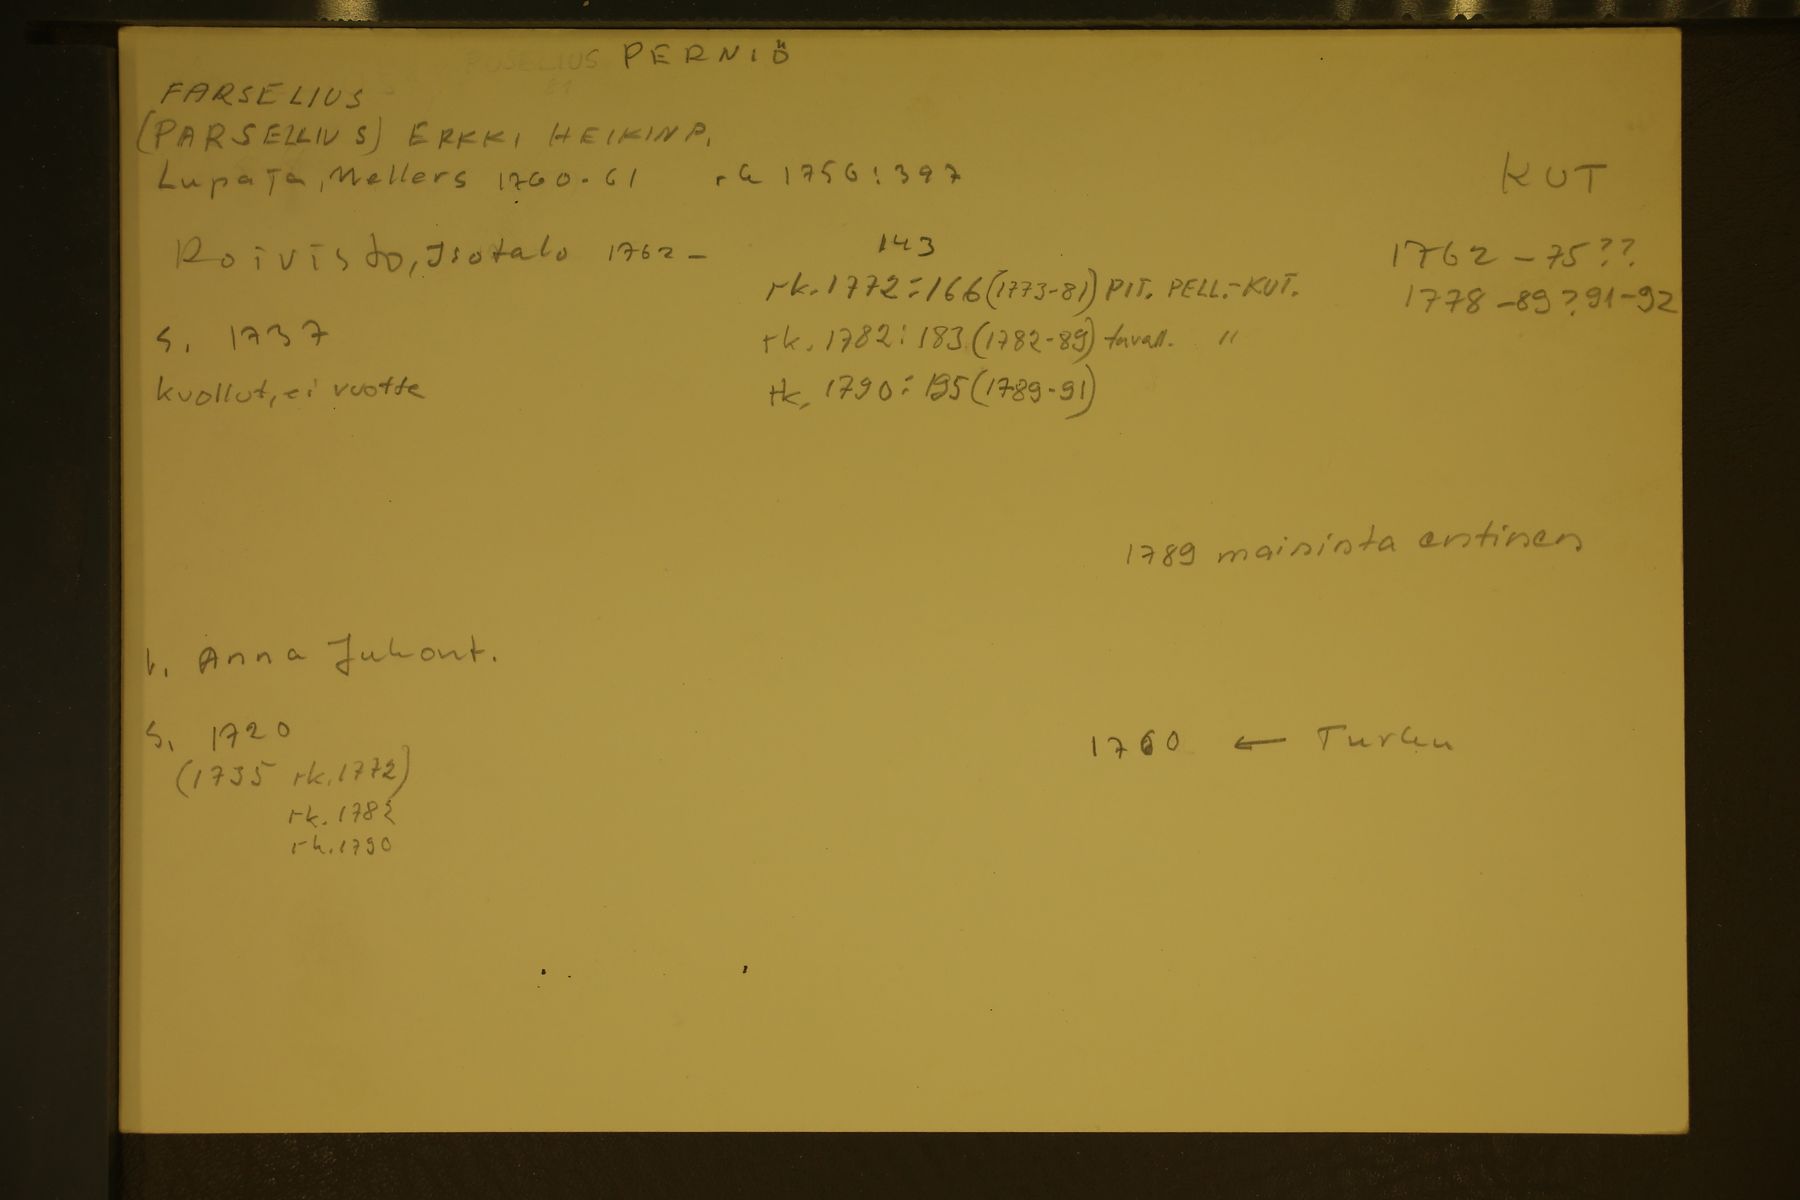 PERNIÖ
FARSELIUS
(PARSELLIUS) ERKKI HEIKINP.
Lupaja, Mellers 1760-61 rk 1756:397
KUT
Roivisto, Isotalo 1762-
143
1762-75??
rk. 1772:166 (1773-81) PIT. PELL.-KUT.
1778-89? 91-92
s. 1737
rk. 1782:183 (1782-89) tavall. "
kuollut, ei vuotta
rk. 1790:195 (1789-91)
1789 maininta entinen
v. Anna Juhont.
s. 1720
1760 ← Turku
(1735 rk. 1772)
rk. 1782
rk. 1790